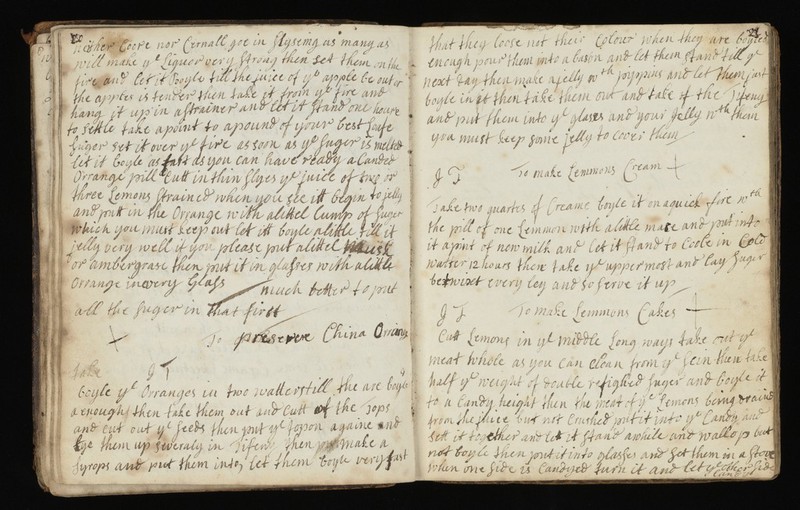 20
neither Coore nor Cornall goe in slysemg as many as
will make ye Liquor very strong then set them on the
fire and let it boyle till the juice of ye apple be out or
the apples is tender then take it from ye fire and
hang it up in a strainer and let it stand one houre
to settle take a point to a pound of your best Loafe
suger set it over ye fire as soon as ye suger is melted
let it boyle as fast as you can have ready a Canded
Orrange pill Cutt in thin slyes ye juice of two or
three Lemons strained when you see itt begin to jelly
and putt in the Orrange with a littel Lump of suger
which you must keep out let itt boyle a little till it
jelly very well if you please put a littel musk
or ambergrase then put it in glasses with a little
Orrange in every Glass much better to put
all the suger in that first
To preserve China Orrang
take J T
boyle ye Orranges in two watters till the are boyle
a enough then take them out and Cutt of the Tops
and cut out ye seeds then put ye top on againe and
tye them up severaly in then put make a
syrops and put them into, let them boyle very fast
21
that they loose not their Colour when they are boyled
enough pour them into a bason and let them stand till ye
next day then make a jelly wth pyppins and let them just
boyle in it then take them out and take of the
and put them into ye glases and your jelly wth them
you must keep some jelly to cover them
J T To make Lemmons Cream
Take two quartes of Creame boyle it on a quick fire wth
the pill of one Lemmon with a little mace and put into
it a pint of new milk and let it stand to Coole in Cold
watter 12 hours then take ye uppermost and Lay suger
betwixt every Ley and so serve it up
J T To make Lemmons Cakes
Cutt Lemons in ye middle Long ways take out ye
meat whole as you can clean from ye skin then take
half ye weight of double refighed suger and boyle it
to a Candy height then the meat of ye Lemons being draind
from the juice but not Crushed put it into ye Candy and
sett it together and let it stand a while and wallop but
not boyle then put it into glasses and set them in a stove
when one side is Candyed turn it and let ye other side
Candy